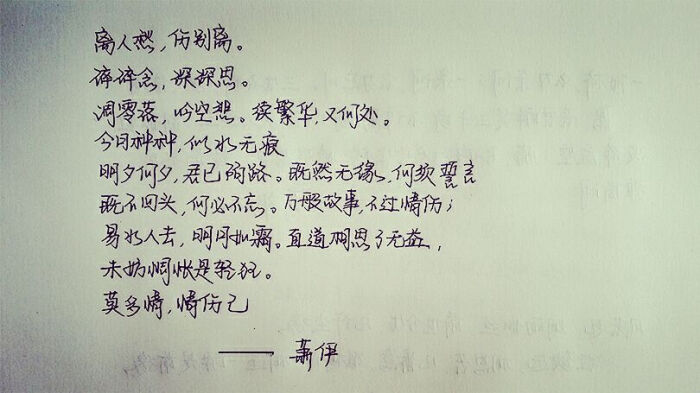 离人愁，伤别离。
碎碎念，深深思。
凋零落，吟空想。羡繁华，又何处。
今日种种，似水无痕
明夕何夕，君已陌路。既然无缘，何须誓言
既不回头，何必不忘。万般故事，不过情伤；
易水人去，明月如霜。直道相思了无益，
未妨惆怅是轻狂。
莫多情，情伤己
—— 萧伊